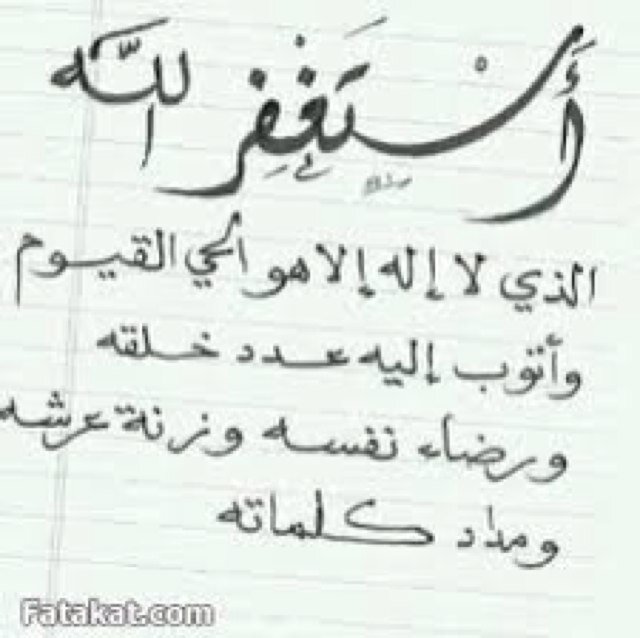 أَسْتَغْفِرُ اللَّه
الذي لا إله إلا هو الحي القيوم
وأتوب إليه عدد خلقه
ورضاء نفسه وزنة عرشه
ومداد كلماته
Fatakat.com